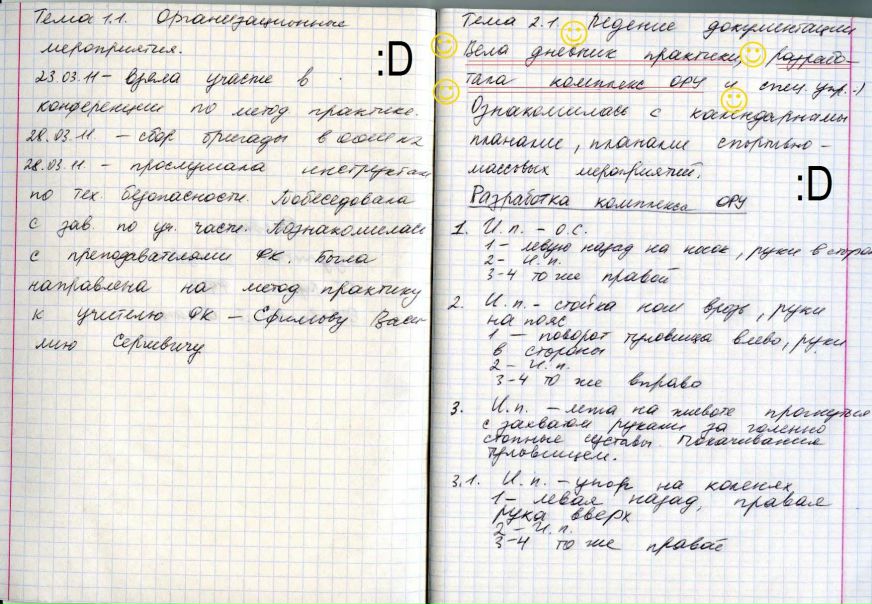 Тема 1.1. Организационные
мероприятия.
:D
23.03.11 – взяла участие в
конференции по метод практике.
28.03.11 – сбор бригады в ООШ №2
28.03.11 – прослушала инструктаж
по тех. безопасности. Побеседовала
с зав. по уч. части. Познакомилась
с преподавателями ФК. Была
направлена на метод практику
к учителю ФК – Ефимову Васи-
лию Сергиевичу
Тема 2.1. Ведение документации
Вела дневник практики, разрабо-
тала комплекс ОРУ и спец. упр. :)
Ознакомилась с календарными
планами, планами спортивно-
массовых мероприятий.
:D
Разработка комплекса ОРУ
1. И.п. – о.с.
1 – левую назад на носок, руки в сторон
2 – И.п.
3-4 то же правой
2. И.п. – стойка ноги врозь, руки
на пояс
1 – поворот туловища влево, руки
в стороны
2 – И.п.
3-4 то же вправо
3. И.п. – лежа на животе прогнуться
с захватом руками за голенно
стопные суставы. Покачивания
туловищем.
3.1. И.п. – упор на коленях
1 – левая назад, правая
рука вверх
2 – И.п.
3-4 то же правой